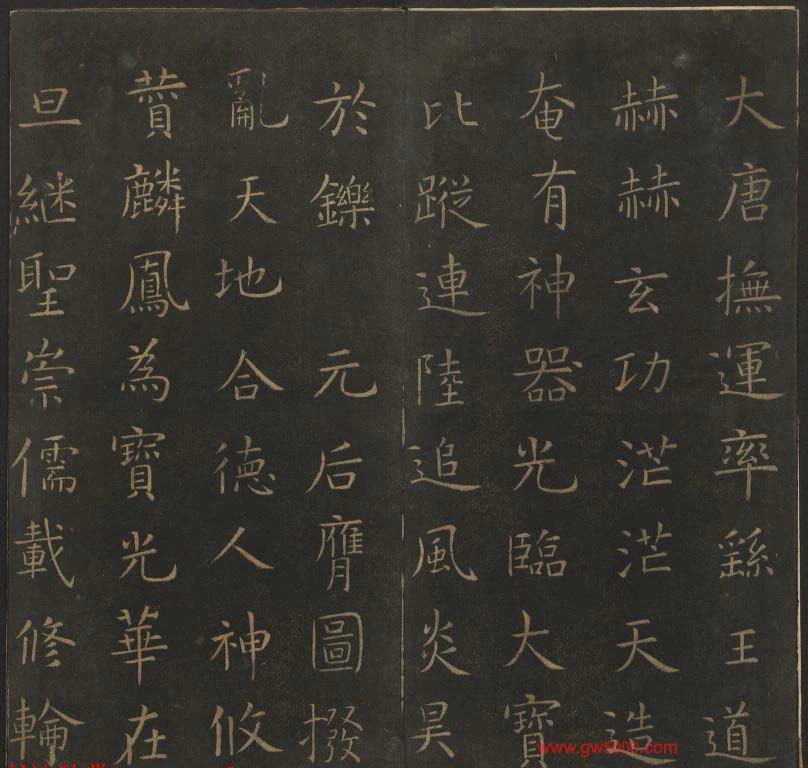 大唐撫運率繇王道
赫赫玄功茫茫天造
奄有神器光臨大寶
比蹤連陸追風炎昊
於鑠 元后膺圖撥
亂天地合德人神攸
贊麟鳳為寶光華在
旦継聖崇儒載修輪
www.gw5000.com